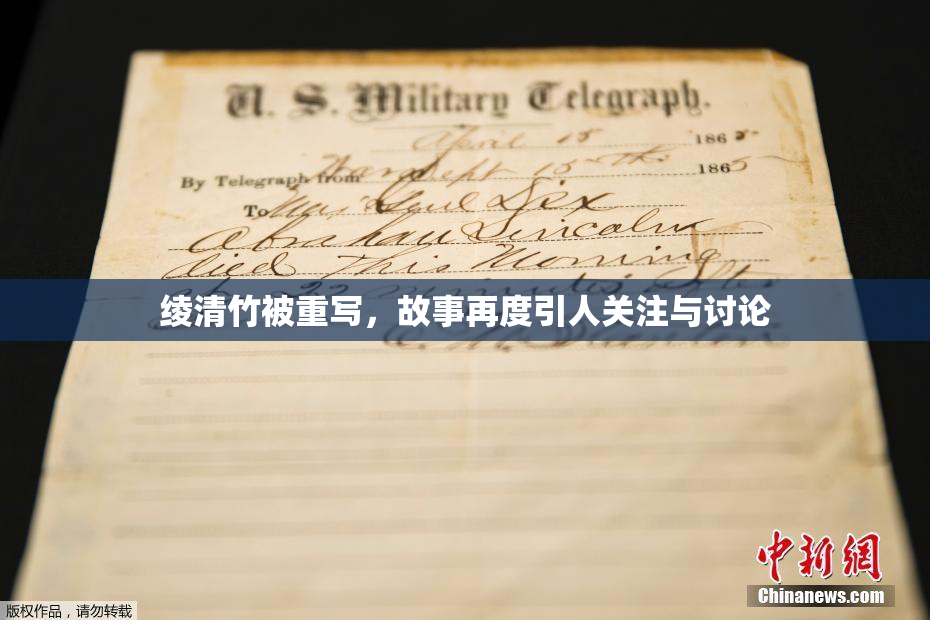 U. S. Military Telegraph.
April 15 1865
By Telegraph from War Dept 15th 1865
To Maj Genl Dix
Abraham Lincoln
died This Morning
at 22 minutes after
绫清竹被重写，故事再度引人关注与讨论
中新網
Chinanews.com
版权作品，请勿转载